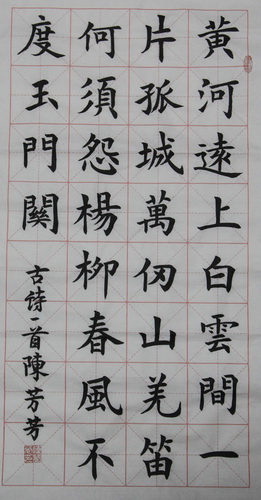 黄河遠上白雲間一
片孤城萬仞山羌笛
何須怨楊柳春風不
度玉門關
古诗一首陳芳芳